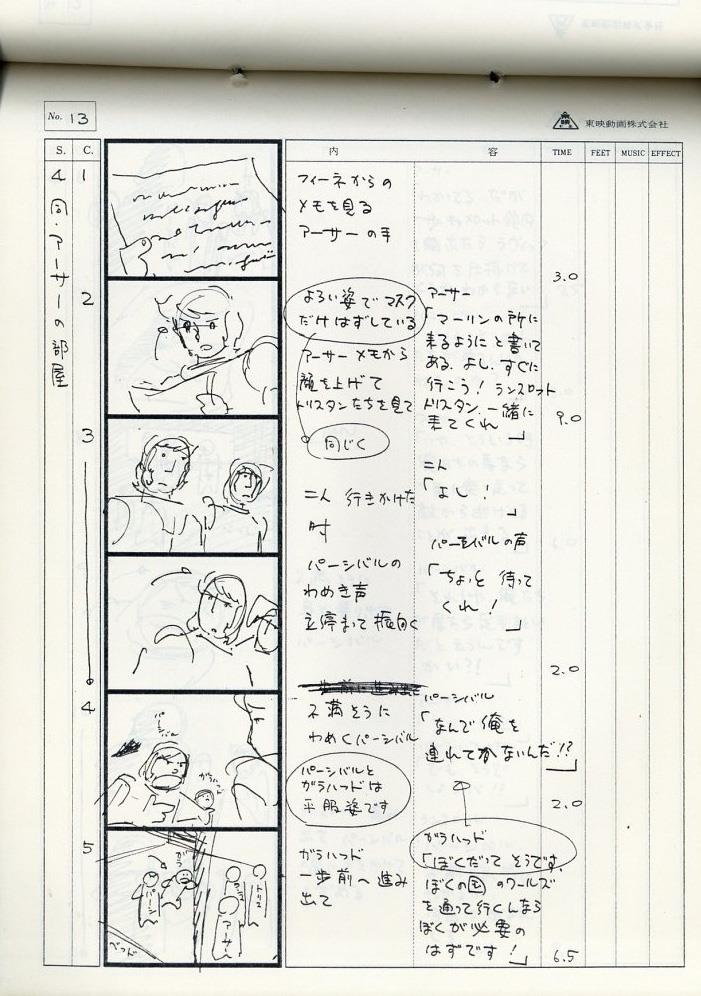 No. 13
東映動画株式会社
S. C. 内 容 TIME FEET MUSIC EFFECT
4 同・アーサーの部屋
1
フィーネからの
メモを見る
アーサーの手
3.0
2
よろい姿でマスク
だけはずしている
アーサー メモから
顔を上げて
トリスタンたちを見て
アーサー
「マーリンの所に
来るようにと書いて
ある、よし、すぐに
行こう! ランスロット
トリスタン、一緒に
来てくれ」
9.0
3
同じく
二人 行きかけた
時
パーシバルの
わめき声
立停まって振向く
二人
「よし!」
パーシバルの声
「ちょっと 待って
くれ!」
2.0
4
パーシバル
ガラハッド
不満そうに
わめくパーシバル
パーシバルと
ガラハッドは
平服姿です
パーシバル
「なんで俺を
連れてかないんだ!?」
2.0
5
パーシ
ガラ
トリス
アーサー
ベッド
ガラハッド
一歩前へ進み
出て
ガラハッド
「ぼくだって そうです、
ぼくの国のワールズ
を通って行くんなら
ぼくが必要の
はずです!」
6.5